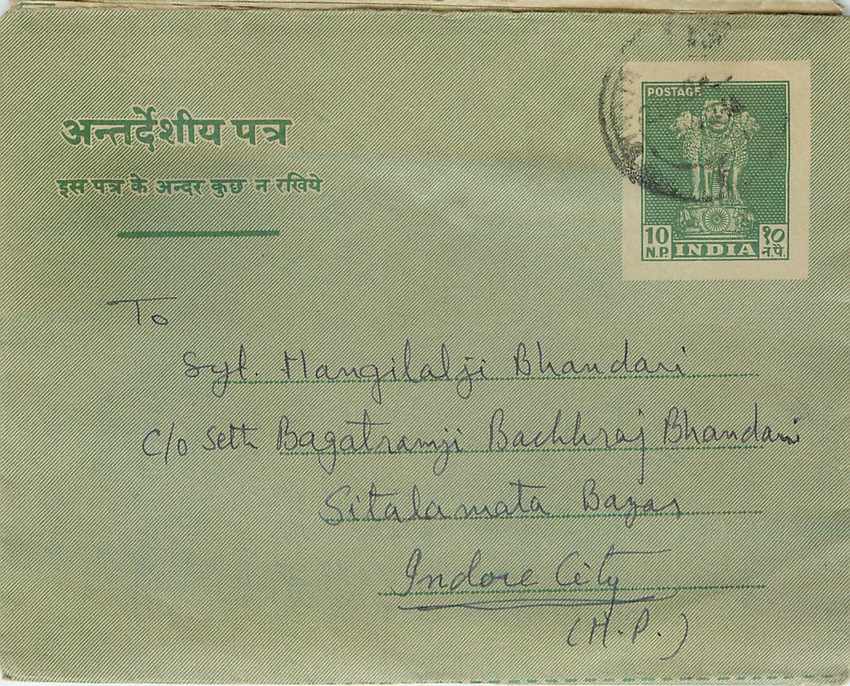 अन्तर्देशीय पत्र
इस पत्र के अन्दर कुछ न रखिये
POSTAGE
10 N.P. INDIA १० न.पै.
To
Syt. Mangilalji Bhandari
C/o Seth Bagatramji Bachhraj Bhandari
Sitalamata Bazar
Indore City
(M.P.)